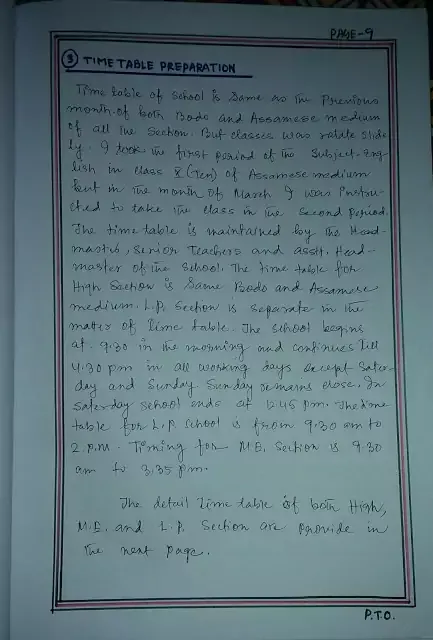 PAGE-9
③ TIME TABLE PREPARATION
Time table of school is same as the Previous
month of both Bodo and Assamese medium
of all the Section. But classes was
ly. I took the first period of the Subject Eng-
lish in class X (Ten) of Assamese medium
but in the month of March I was Instru-
cted to take the class in the Second Period.
The time table is maintained by the Head-
master, Senior Teachers and asstt. Head-
master of the School. The time table for
High Section is Same Bodo and Assamese
medium. L.P. Section is separate in the
matter of time table. The school begins
at 9.30 in the morning and continues till
4.30 pm in all working days except Satur-
day and Sunday. Sunday remains close. In
Saturday school ends at 12.45 pm. The time
table for L.P. School is from 9.30 am to
2. p.m. Timing for M.E. Section is 9.30
am to 3.35 pm.
The detail time table of both High,
M.E. and L.P. Section are provide in
the next page.
P.T.O.